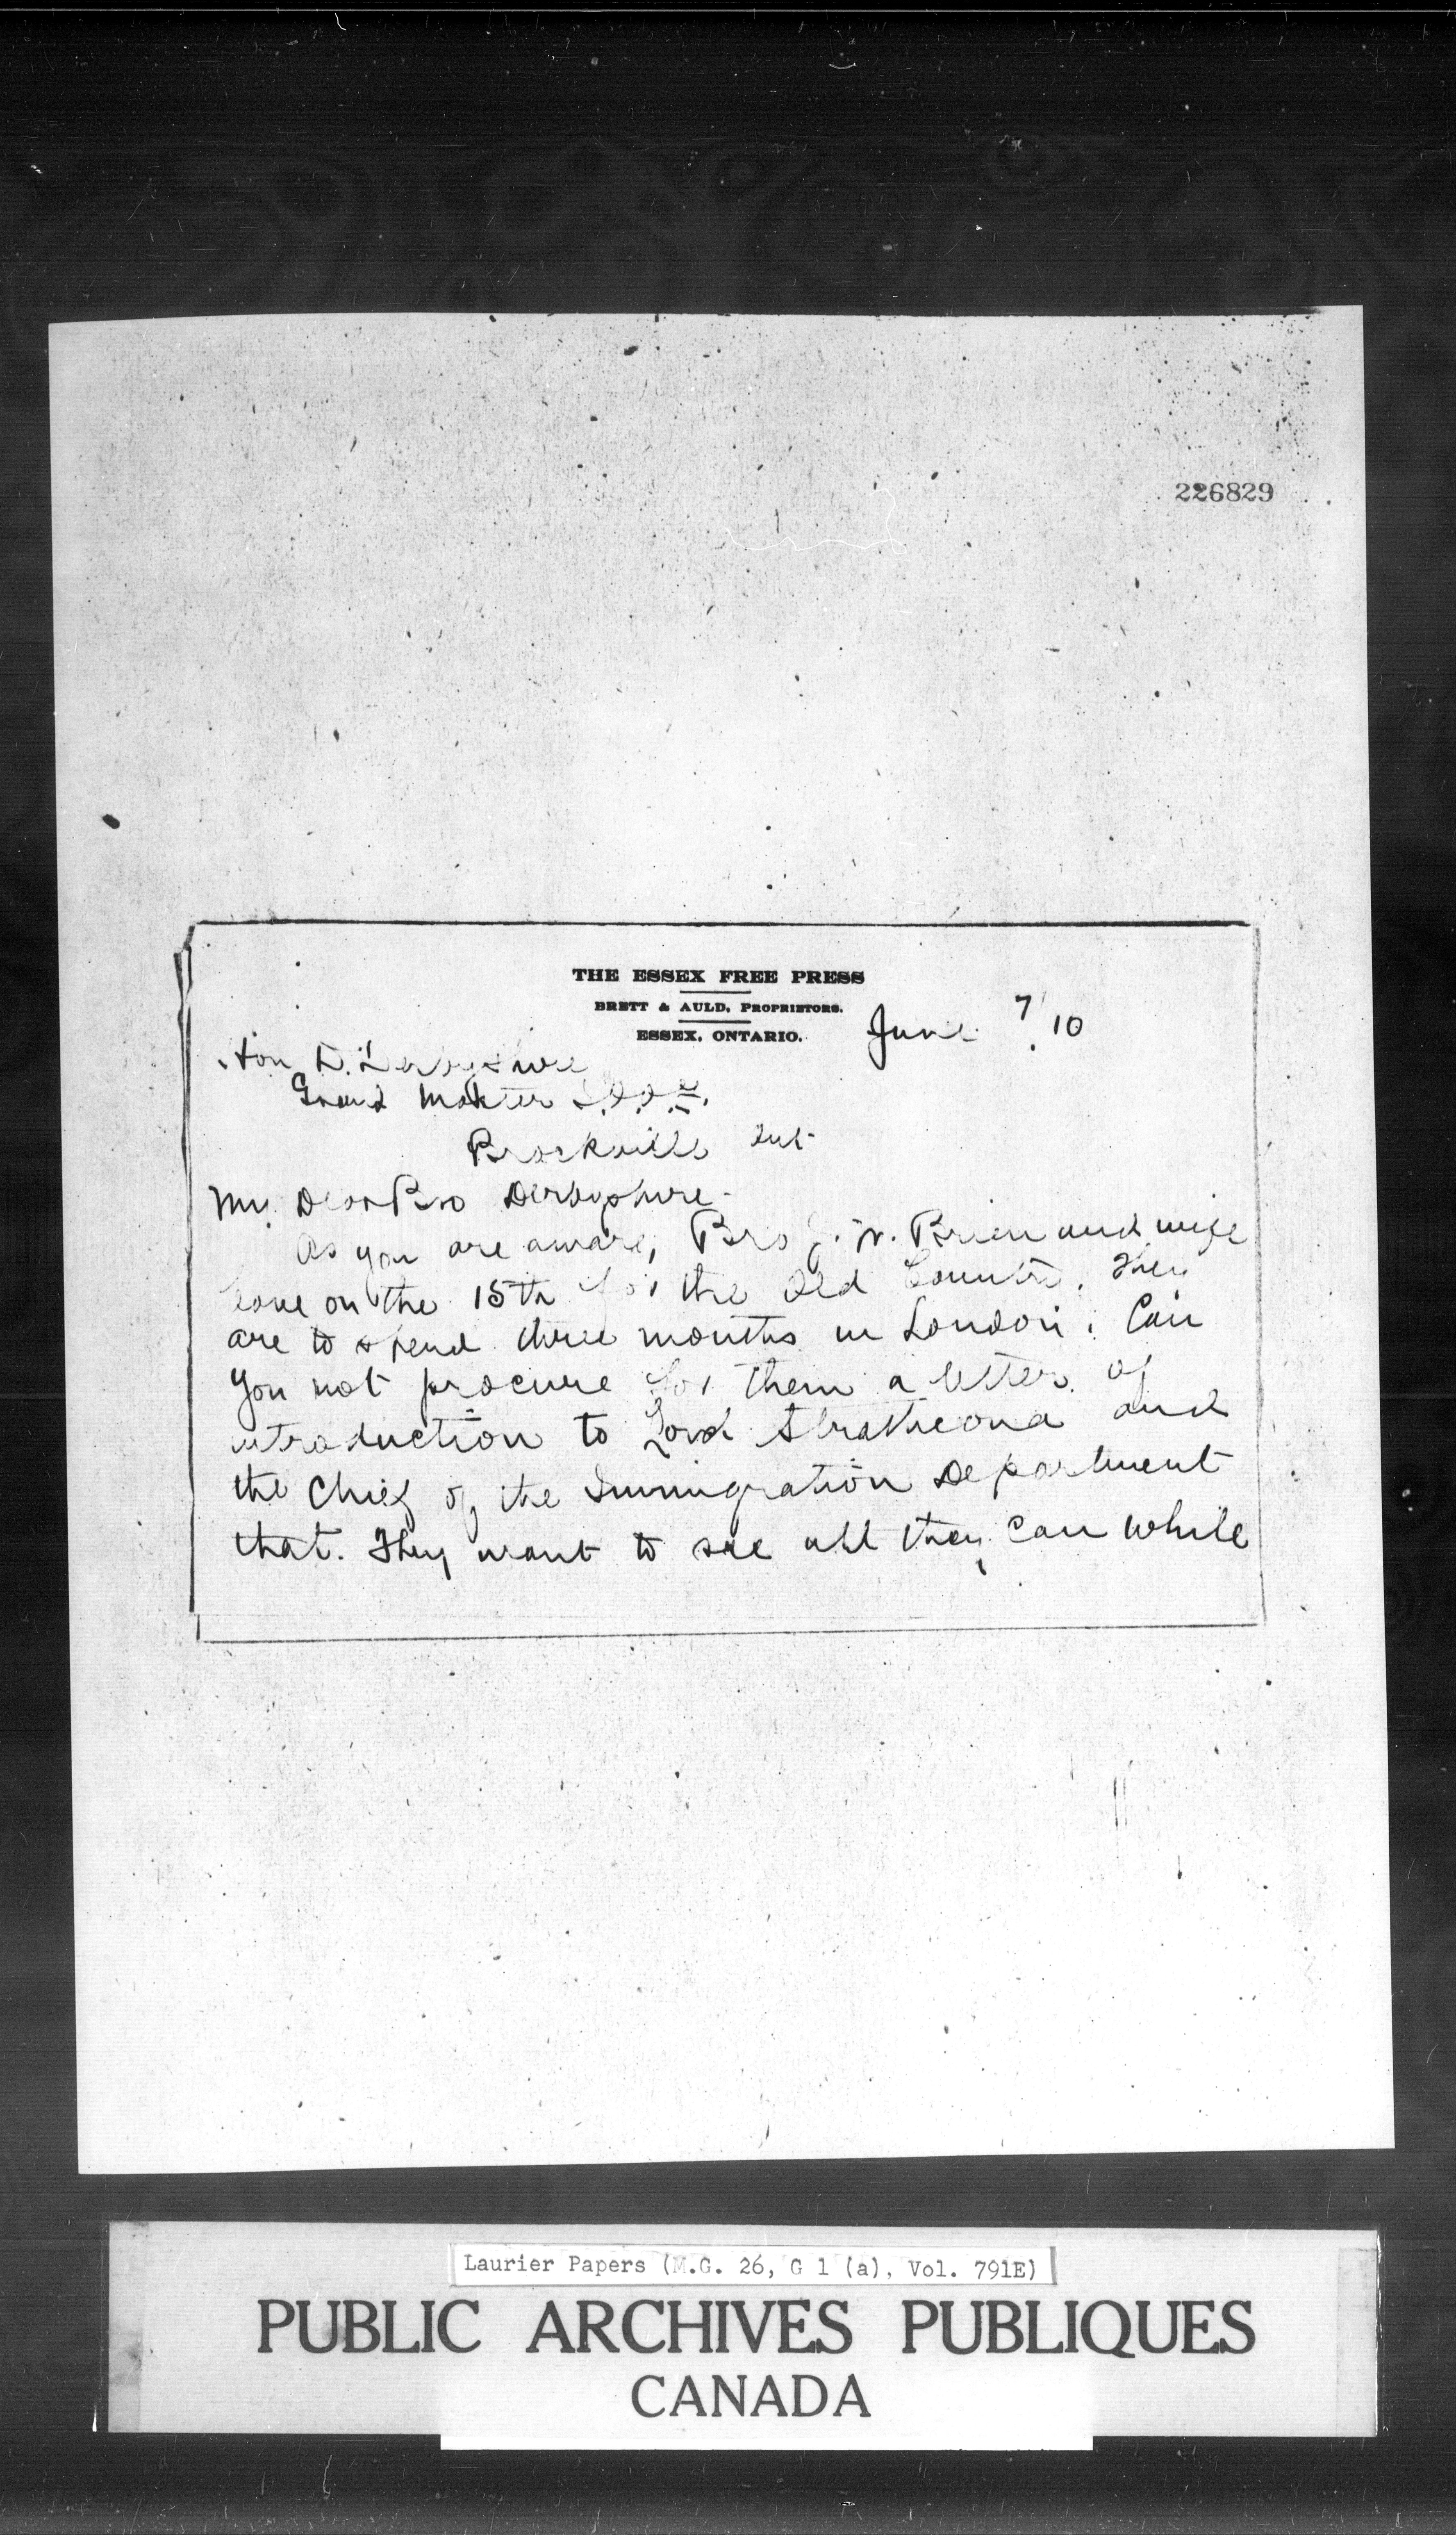 226829
THE ESSEX FREE PRESS
BRETT & AULD, PROPRIETORS.
ESSEX, ONTARIO.
June 7/10
Hon D. Derbyshire
Grand Master I.O.O.F.
Brockville Ont
My Dear Bro Derbyshire -
As you are aware, Bro J. W. Brien and wife
leave on the 15th for the Old Country. They
are to spend three months in London. Can
you not procure for them a letter of
introduction to Lord Strathcona and
the Chief of the Immigration Department
that. They want to see all they can while
Laurier Papers (M.G. 26, G 1 (a), Vol. 791E)
PUBLIC ARCHIVES PUBLIQUES
CANADA